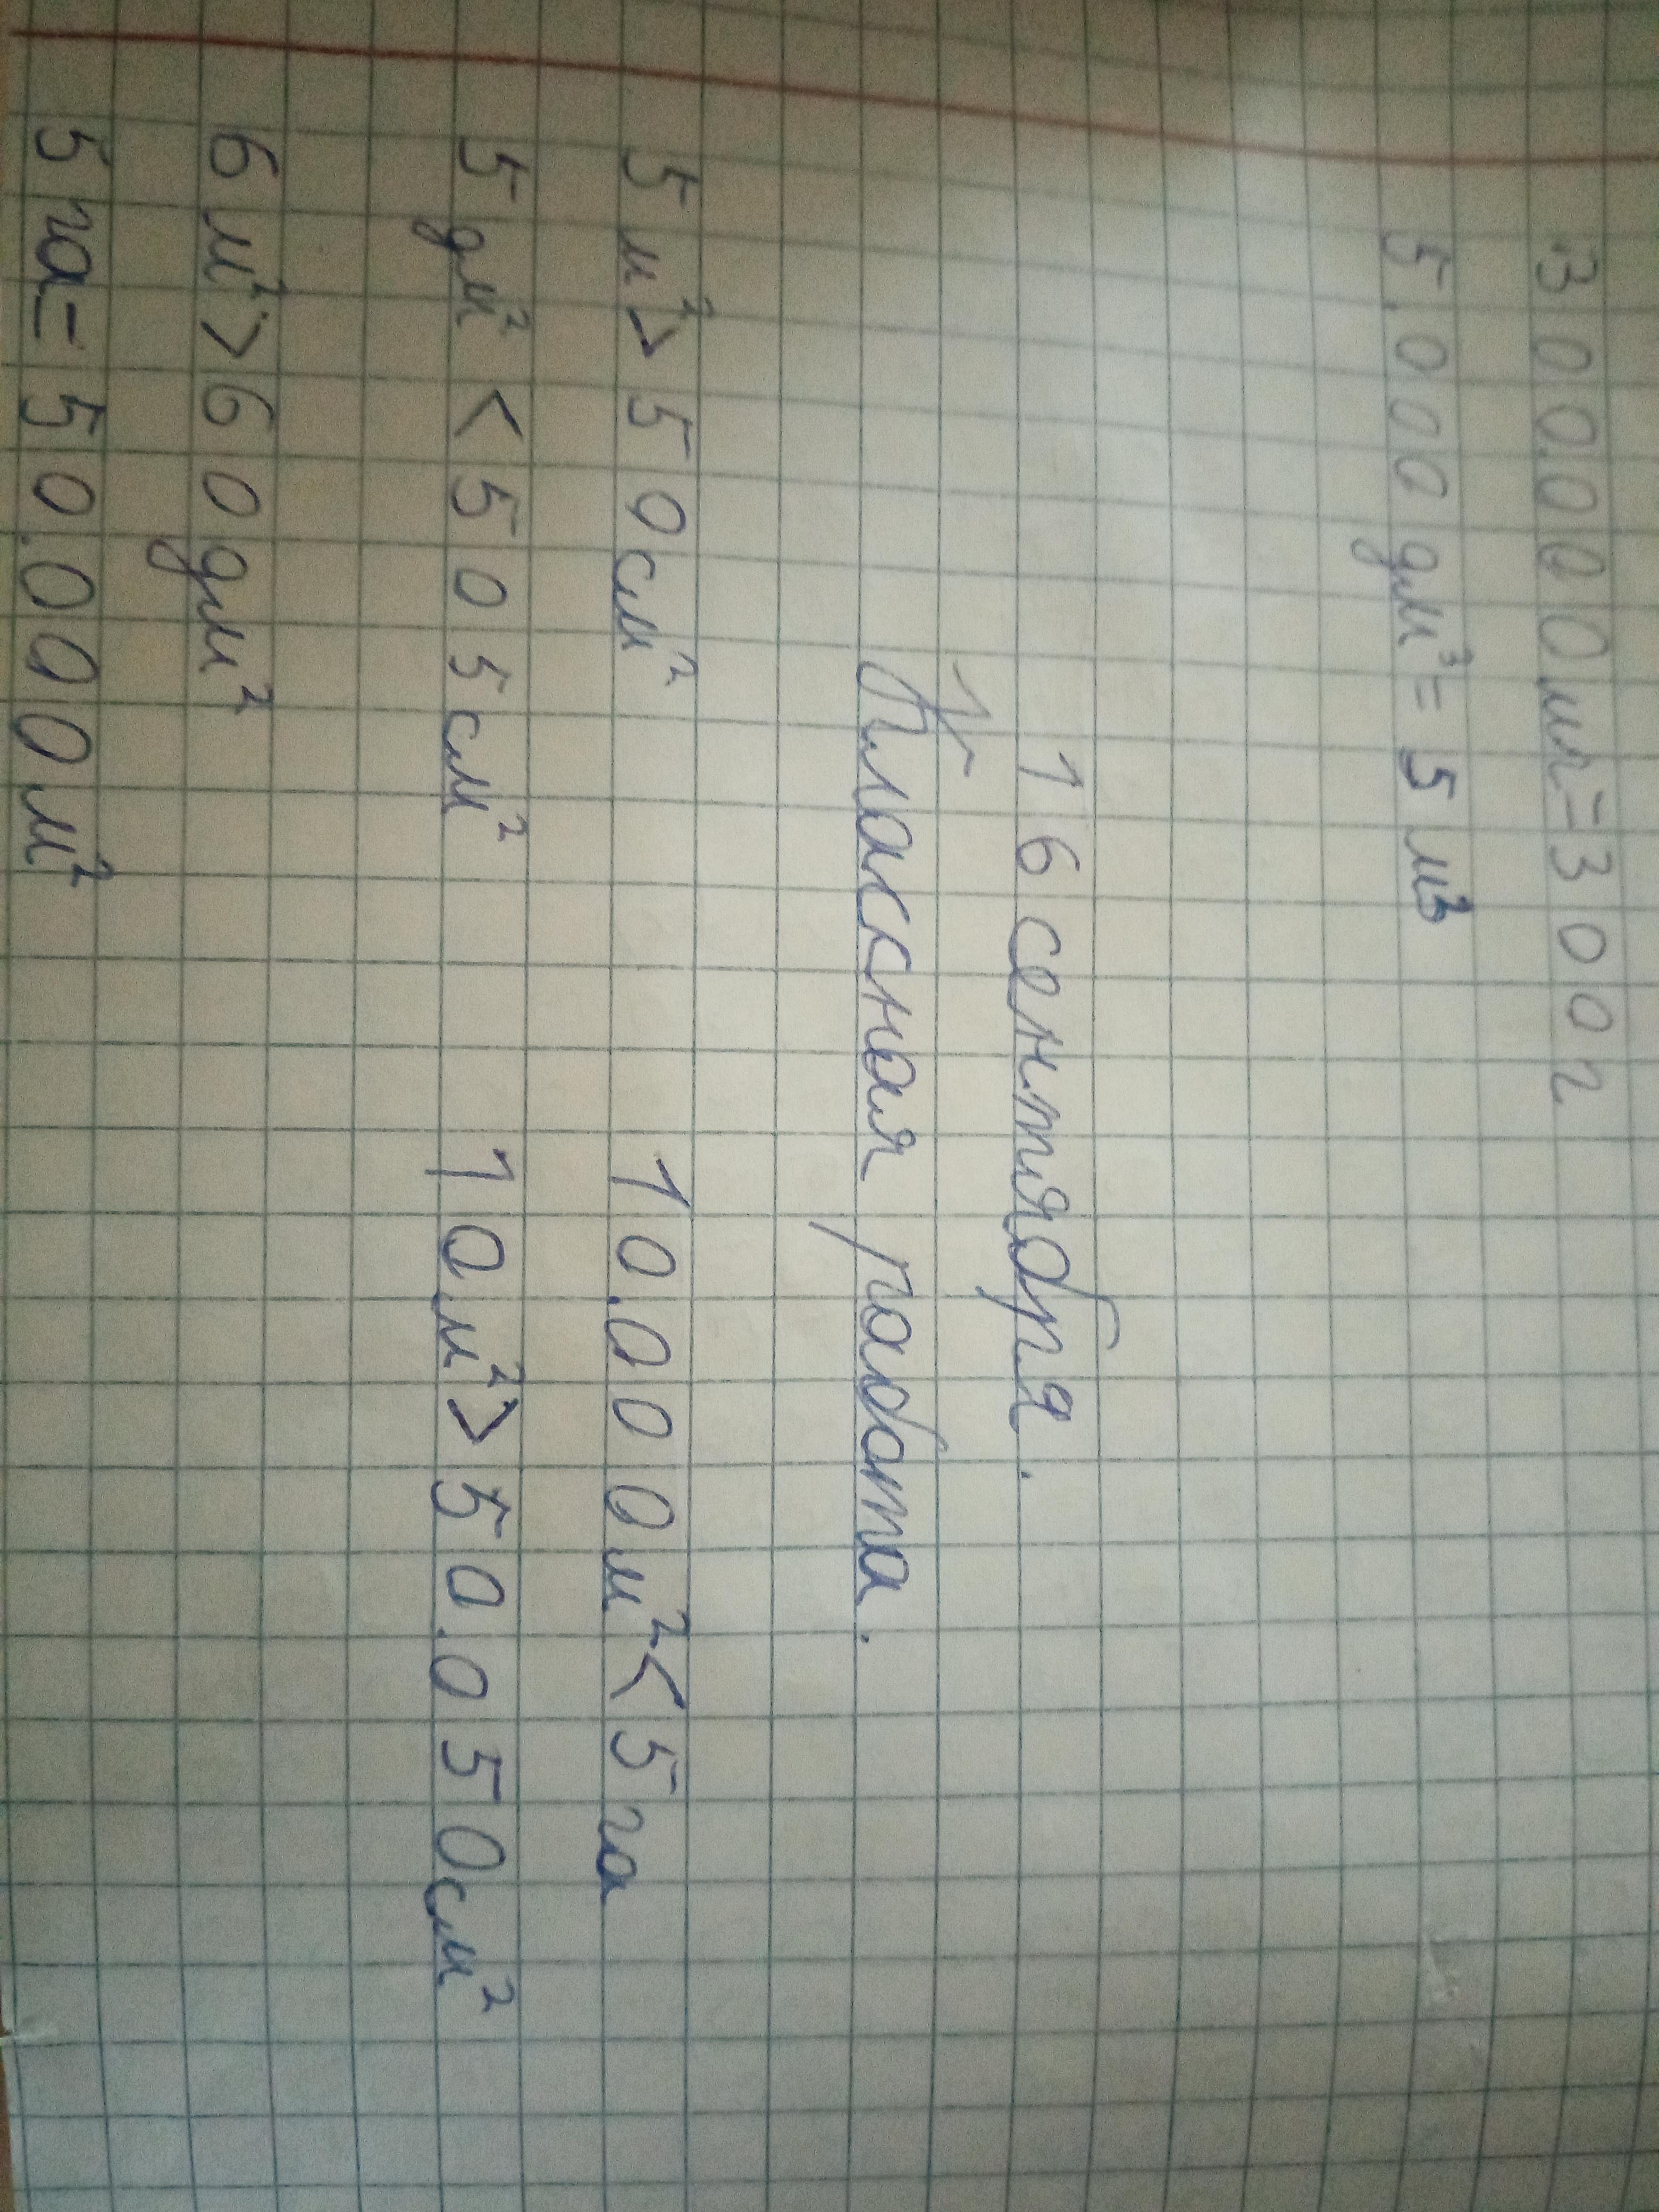 300.000мл=300л
5.000дм³=5м³
16 сентября.
Классная работа.
5м²>50см² 10.000м²<5га
5дм²<505см² 10м²>50.050см²
6м²>60дм²
5га=50.000м²